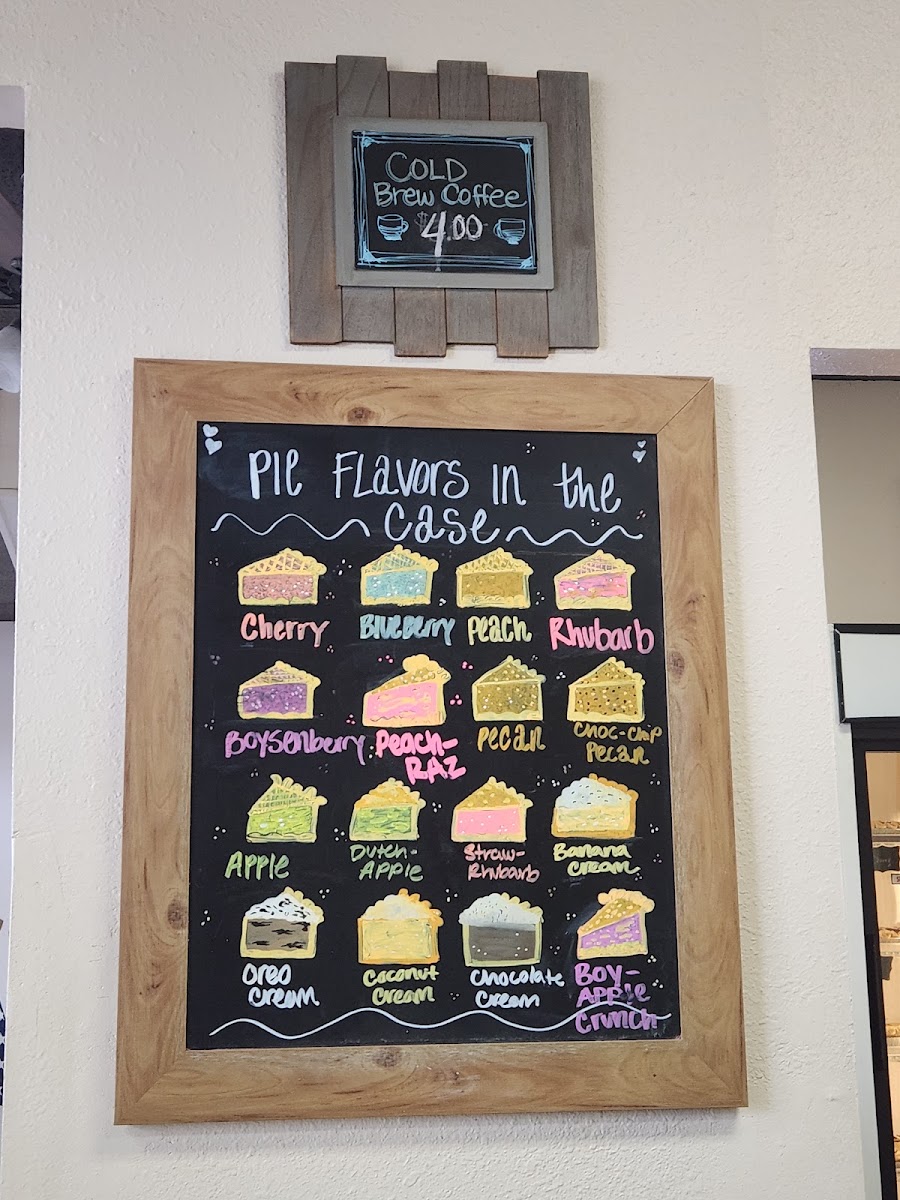 COLD
Brew Coffee
$4.00
PIE FLavors in the
case
Cherry
BLUEBERRY
Peach
Rhubarb
Boysenberry
Peach-
RAZ
Pecan
Choc-chip
Pecan
Apple
Dutch-
APPle
Straw-
Rhubarb
Banana
cream
Oreo
cream
Coconut
cream
Chocolate
cream
BOY-
APPle
Crunch